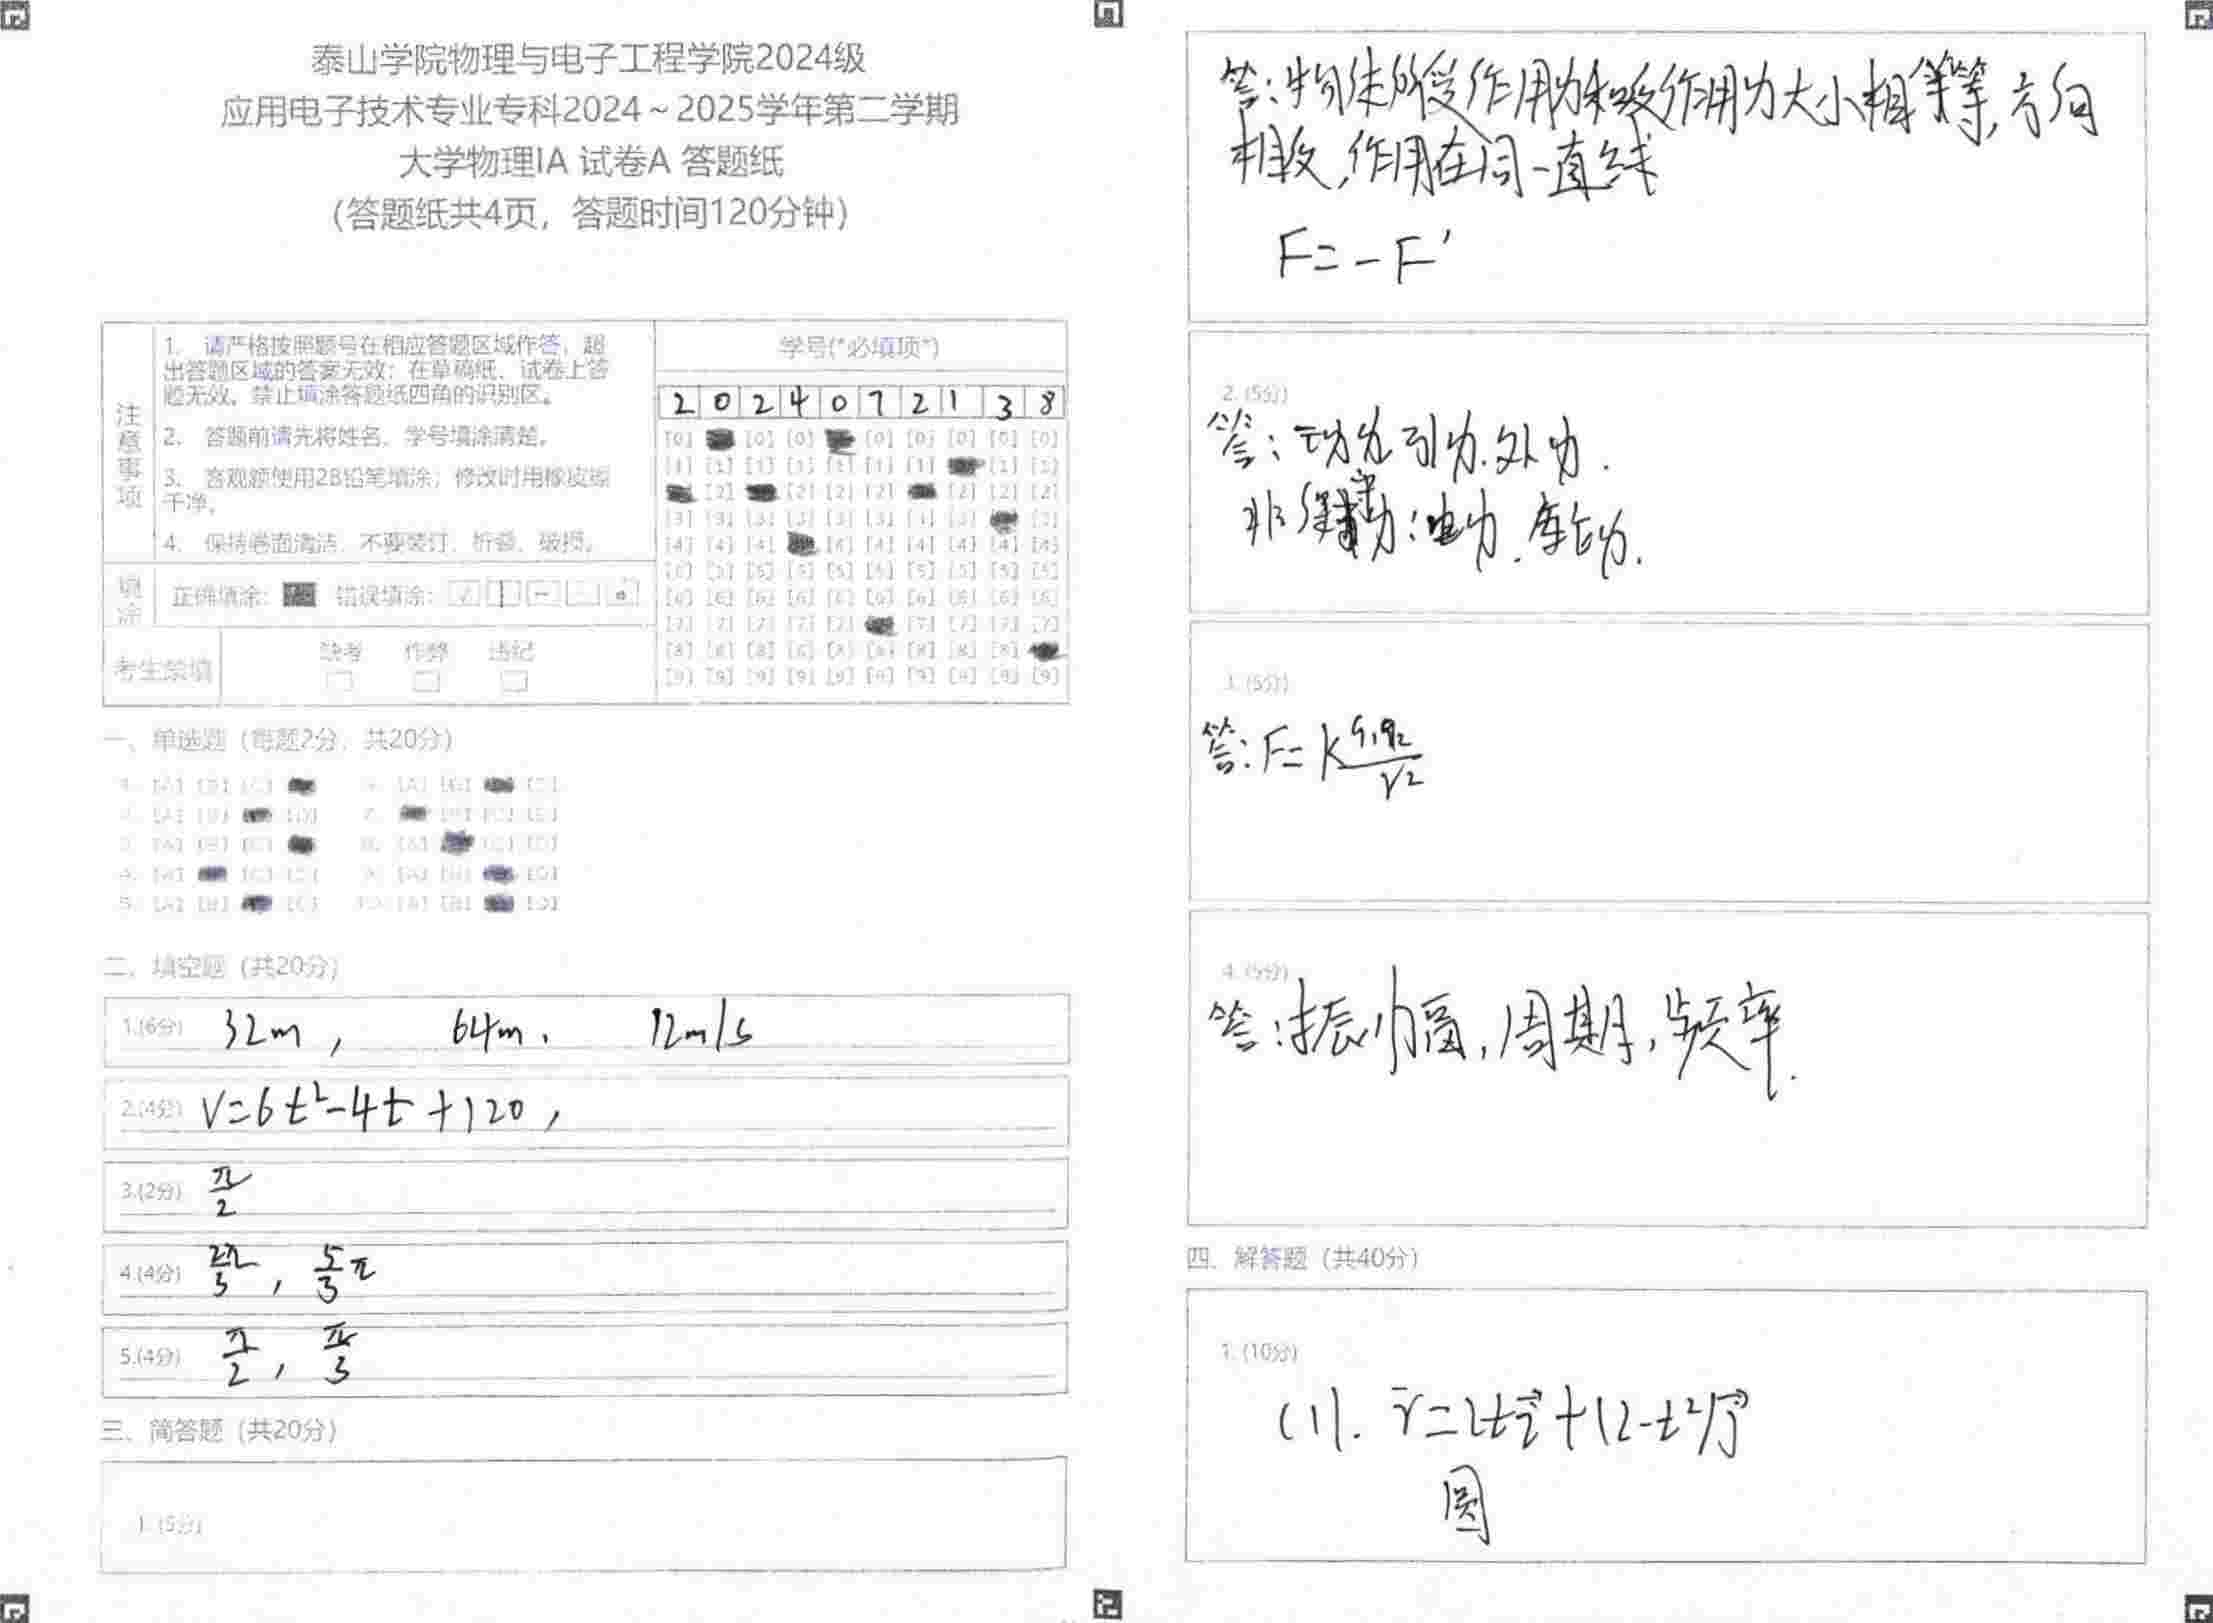 泰山学院物理与电子工程学院2024级
应用电子技术专业专科2024～2025学年第二学期
大学物理IA 试卷A 答题纸
（答题纸共4页，答题时间120分钟）
注意事项
1. 请严格按照题号在相应答题区域作答，超
出答题区域的答案无效；在草稿纸、试卷上答
题无效。禁止填涂答题纸四角的识别区。
2. 答题前请先将姓名、学号填涂清楚。
3. 客观题使用2B铅笔填涂；修改时用橡皮擦
干净。
4. 保持卷面清洁，不要装订、折叠、破损。
填涂
正确填涂： 错误填涂：
考生禁填 缺考 作弊 违纪
学号(*必填项*)
2 0 2 4 0 7 2 1 3 8
[0] [0] [0] [0] [0] [0] [0] [0]
[1] [1] [1] [1] [1] [1] [1] [1] [1]
[2] [2] [2] [2] [2] [2] [2]
[3] [3] [3] [3] [3] [3] [3] [3] [3]
[4] [4] [4] [4] [4] [4] [4] [4] [4]
[5] [5] [5] [5] [5] [5] [5] [5] [5] [5]
[6] [6] [6] [6] [6] [6] [6] [6] [6] [6]
[7] [7] [7] [7] [7] [7] [7] [7] [7]
[8] [8] [8] [8] [8] [8] [8] [8] [8]
[9] [9] [9] [9] [9] [9] [9] [9] [9] [9]
一、单选题（每题2分，共20分）
1. [A] [B] [C] 6. [A] [B] [D]
2. [A] [B] [D] 7. [B] [C] [D]
3. [A] [B] [C] 8. [A] [C] [D]
4. [A] [C] [D] 9. [A] [B] [D]
5. [A] [B] [D] 10. [A] [B] [D]
二、填空题（共20分）
1.(6分) 32m, 64m. 12m/s
2.(4分) V=6t²-4t+120,
3.(2分) π/2
4.(4分) 2π/3, 5/3π
5.(4分) π/2, π/3
三、简答题（共20分）
1.(5分)
答:物体所受作用力和反作用力大小相等,方向
相反,作用在同一直线
F=-F'
2.(5分)
答:
3.(5分)
答:F=k q₁q₂/r²
4.(5分)
答:振幅,周期,频率.
四、解答题（共40分）
1.(10分)
(1). r̄=2ti⃗+(2-t²)j⃗
圆